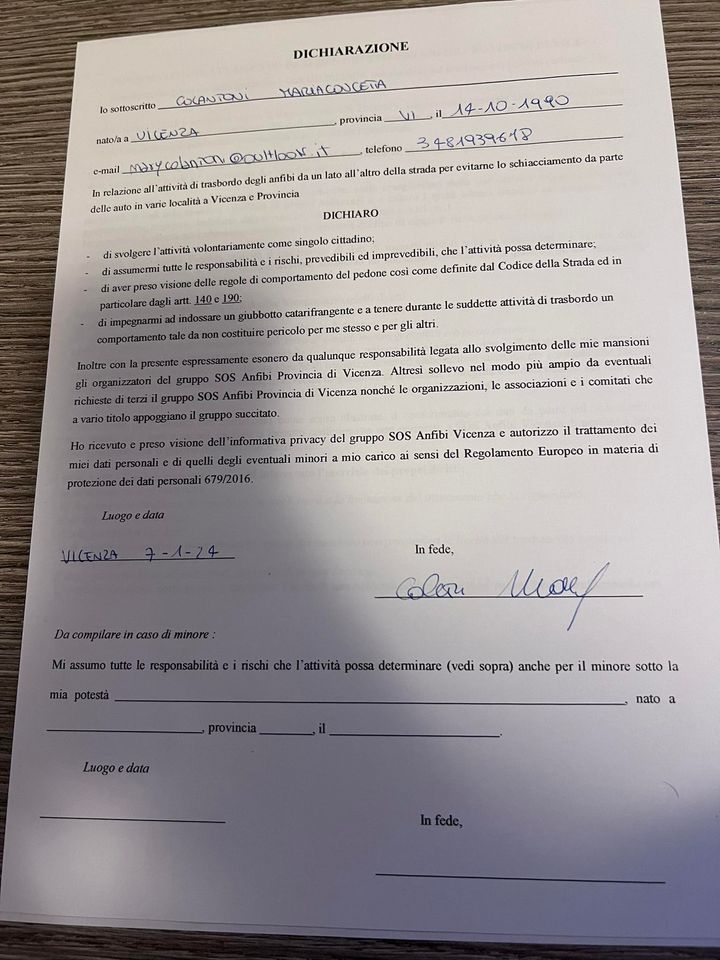 DICHIARAZIONE
Io sottoscritto COLANTONI MARIACONCETA
nato/a a VICENZA, provincia VI, il 14-10-1990
e-mail marycolantoni@outlook.it, telefono 3481939618
In relazione all'attività di trasbordo degli anfibi da un lato all'altro della strada per evitarne lo schiacciamento da parte
delle auto in varie località a Vicenza e Provincia
DICHIARO
- di svolgere l'attività volontariamente come singolo cittadino;
- di assumermi tutte le responsabilità e i rischi, prevedibili ed imprevedibili, che l'attività possa determinare;
- di aver preso visione delle regole di comportamento del pedone così come definite dal Codice della Strada ed in
particolare dagli artt. 140 e 190;
- di impegnarmi ad indossare un giubbotto catarifrangente e a tenere durante le suddette attività di trasbordo un
comportamento tale da non costituire pericolo per me stesso e per gli altri.
Inoltre con la presente espressamente esonero da qualunque responsabilità legata allo svolgimento delle mie mansioni
gli organizzatori del gruppo SOS Anfibi Provincia di Vicenza. Altresì sollevo nel modo più ampio da eventuali
richieste di terzi il gruppo SOS Anfibi Provincia di Vicenza nonché le organizzazioni, le associazioni e i comitati che
a vario titolo appoggiano il gruppo succitato.
Ho ricevuto e preso visione dell'informativa privacy del gruppo SOS Anfibi Vicenza e autorizzo il trattamento dei
miei dati personali e di quelli degli eventuali minori a mio carico ai sensi del Regolamento Europeo in materia di
protezione dei dati personali 679/2016.
Luogo e data
In fede,
VICENZA 7-1-24
Da compilare in caso di minore :
Mi assumo tutte le responsabilità e i rischi che l'attività possa determinare (vedi sopra) anche per il minore sotto la
mia potestà , nato a
, provincia , il .
Luogo e data
In fede,